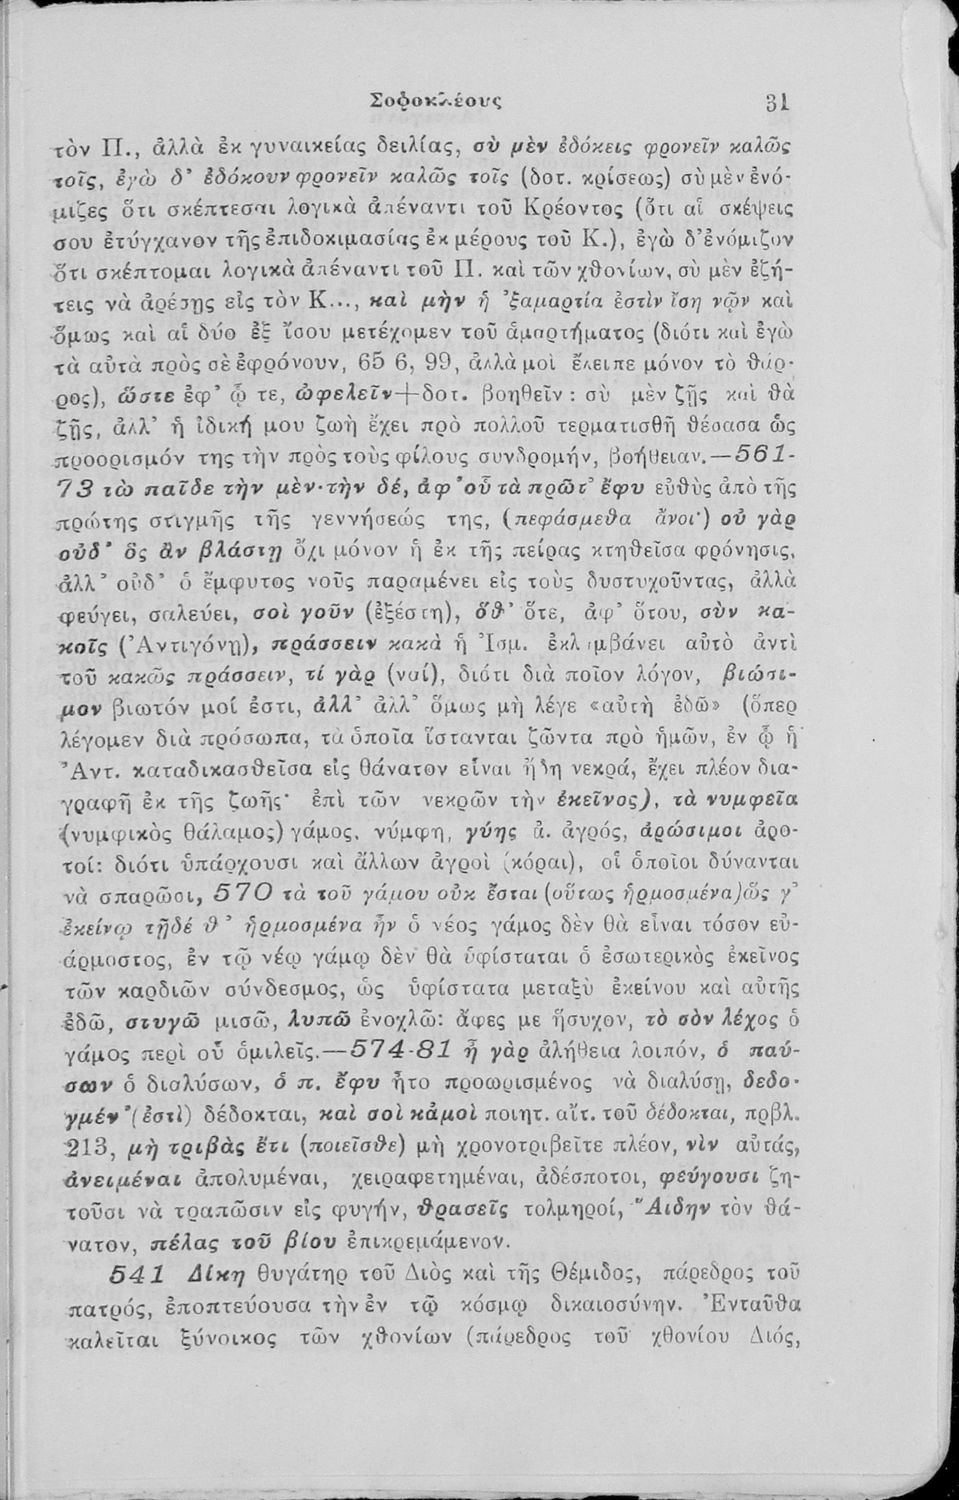 Σοφοκλέους 31
τὸν Π., ἀλλὰ ἐκ γυναικείας δειλίας, σὺ μὲν ἐδόκεις φρονεῖν καλῶς
τοῖς, ἐγὼ δ' ἐδόκουν φρονεῖν καλῶς τοῖς (δοτ. κρίσεως) σὺ μὲν ἐνό-
μιζες ὅτι σκέπτεσαι λογικὰ ἀπέναντι τοῦ Κρέοντος (ὅτι αἱ σκέψεις
σου ἐτύγχανον τῆς ἐπιδοκιμασίας ἐκ μέρους τοῦ Κ.), ἐγὼ δ' ἐνόμιζον
ὅτι σκέπτομαι λογικὰ ἀπέναντι τοῦ Π. καὶ τῶν χθονίων, σὺ μὲν ἐζή-
τεις νὰ ἀρέσῃς εἰς τὸν Κ..., καὶ μὴν ἡ 'ξαμαρτία ἐστὶν ἴση νῷν καὶ
ὅμως καὶ αἱ δύο ἐξ ἴσου μετέχομεν τοῦ ἁμαρτήματος (διότι καὶ ἐγὼ
τὰ αὐτὰ πρὸς σὲ ἐφρόνουν, 65 6, 99, ἀλλὰ μοὶ ἔλειπε μόνον τὸ θάρ-
ρος), ὥστε ἐφ' ᾧ τε, ὠφελεῖν+δοτ. βοηθεῖν : σὺ μὲν ζῇς καὶ θὰ
ζῇς, ἀλλ' ἡ ἰδική μου ζωὴ ἔχει πρὸ πολλοῦ τερματισθῆ θέσασα ὡς
προορισμόν της τὴν πρὸς τοὺς φίλους συνδρομήν, βοήθειαν.—561-
73 τὼ παῖδε τὴν μὲν·τὴν δέ, ἀφ' οὗ τὰ πρῶτ' ἔφυ εὐθὺς ἀπὸ τῆς
πρώτης στιγμῆς τῆς γεννήσεώς της, (πεφάσμεθα ἄνοι') οὐ γὰρ
οὐδ' ὃς ἂν βλάστῃ ὄχι μόνον ἡ ἐκ τῆς πείρας κτηθεῖσα φρόνησις,
ἀλλ' οὐδ' ὁ ἔμφυτος νοῦς παραμένει εἰς τοὺς δυστυχοῦντας, ἀλλὰ
φεύγει, σαλεύει, σοὶ γοῦν (ἐξέστη), ὅθ' ὅτε, ἀφ' ὅτου, σὺν κα-
κοῖς ('Αντιγόνῃ), πράσσειν κακὰ ἡ 'Ισμ. ἐκλαμβάνει αὐτὸ ἀντὶ
τοῦ κακῶς πράσσειν, τί γὰρ (ναί), διότι διὰ ποῖον λόγον, βιώσι-
μον βιωτόν μοί ἐστι, ἀλλ' ἀλλ' ὅμως μὴ λέγε «αὐτὴ ἐδῶ» (ὅπερ
λέγομεν διὰ πρόσωπα, τὰ ὁποῖα ἵστανται ζῶντα πρὸ ἡμῶν, ἐν ᾧ ἡ
'Αντ. καταδικασθεῖσα εἰς θάνατον εἶναι ἤδη νεκρά, ἔχει πλέον δια-
γραφῆ ἐκ τῆς ζωῆς· ἐπὶ τῶν νεκρῶν τὴν ἐκεῖνος), τὰ νυμφεῖα
(νυμφικὸς θάλαμος) γάμος, νύμφη, γύης ἀ. ἀγρός, ἀρώσιμοι ἀρο-
τοί: διότι ὑπάρχουσι καὶ ἄλλων ἀγροὶ (κόραι), οἱ ὁποῖοι δύνανται
νὰ σπαρῶσι, 570 τὰ τοῦ γάμου οὐκ ἔσται (οὕτως ἡρμοσμένα) ὥς γ'
ἐκείνῳ τῇδέ θ' ἡρμοσμένα ἦν ὁ νέος γάμος δὲν θὰ εἶναι τόσον εὐ-
άρμοστος, ἐν τῷ νέῳ γάμῳ δὲν θὰ ὑφίσταται ὁ ἐσωτερικὸς ἐκεῖνος
τῶν καρδιῶν σύνδεσμος, ὡς ὑφίστατα μεταξὺ ἐκείνου καὶ αὐτῆς
ἐδῶ, στυγῶ μισῶ, λυπῶ ἐνοχλῶ: ἄφες με ἥσυχον, τὸ σὸν λέχος ὁ
γάμος περὶ οὗ ὁμιλεῖς.—574-81 ἦ γὰρ ἀλήθεια λοιπόν, ὁ παύ-
σων ὁ διαλύσων, ὁ π. ἔφυ ἦτο προωρισμένος νὰ διαλύσῃ, δεδο-
γμέν' (ἐστὶ) δέδοκται, καὶ σοὶ κἀμοὶ ποιητ. αἴτ. τοῦ δέδοκται, πρβλ.
213, μὴ τριβὰς ἔτι (ποιεῖσθε) μὴ χρονοτριβεῖτε πλέον, νὶν αὐτάς,
ἀνειμέναι ἀπολυμέναι, χειραφετημέναι, ἀδέσποτοι, φεύγουσι ζη-
τοῦσι νὰ τραπῶσιν εἰς φυγήν, θρασεῖς τολμηροί, "Αιδην τὸν θά-
νατον, πέλας τοῦ βίου ἐπικρεμάμενον.
541 Δίκη θυγάτηρ τοῦ Διὸς καὶ τῆς Θέμιδος, πάρεδρος τοῦ
πατρός, ἐποπτεύουσα τὴν ἐν τῷ κόσμῳ δικαιοσύνην. 'Ενταῦθα
καλεῖται ξύνοικος τῶν χθονίων (πάρεδρος τοῦ χθονίου Διός,